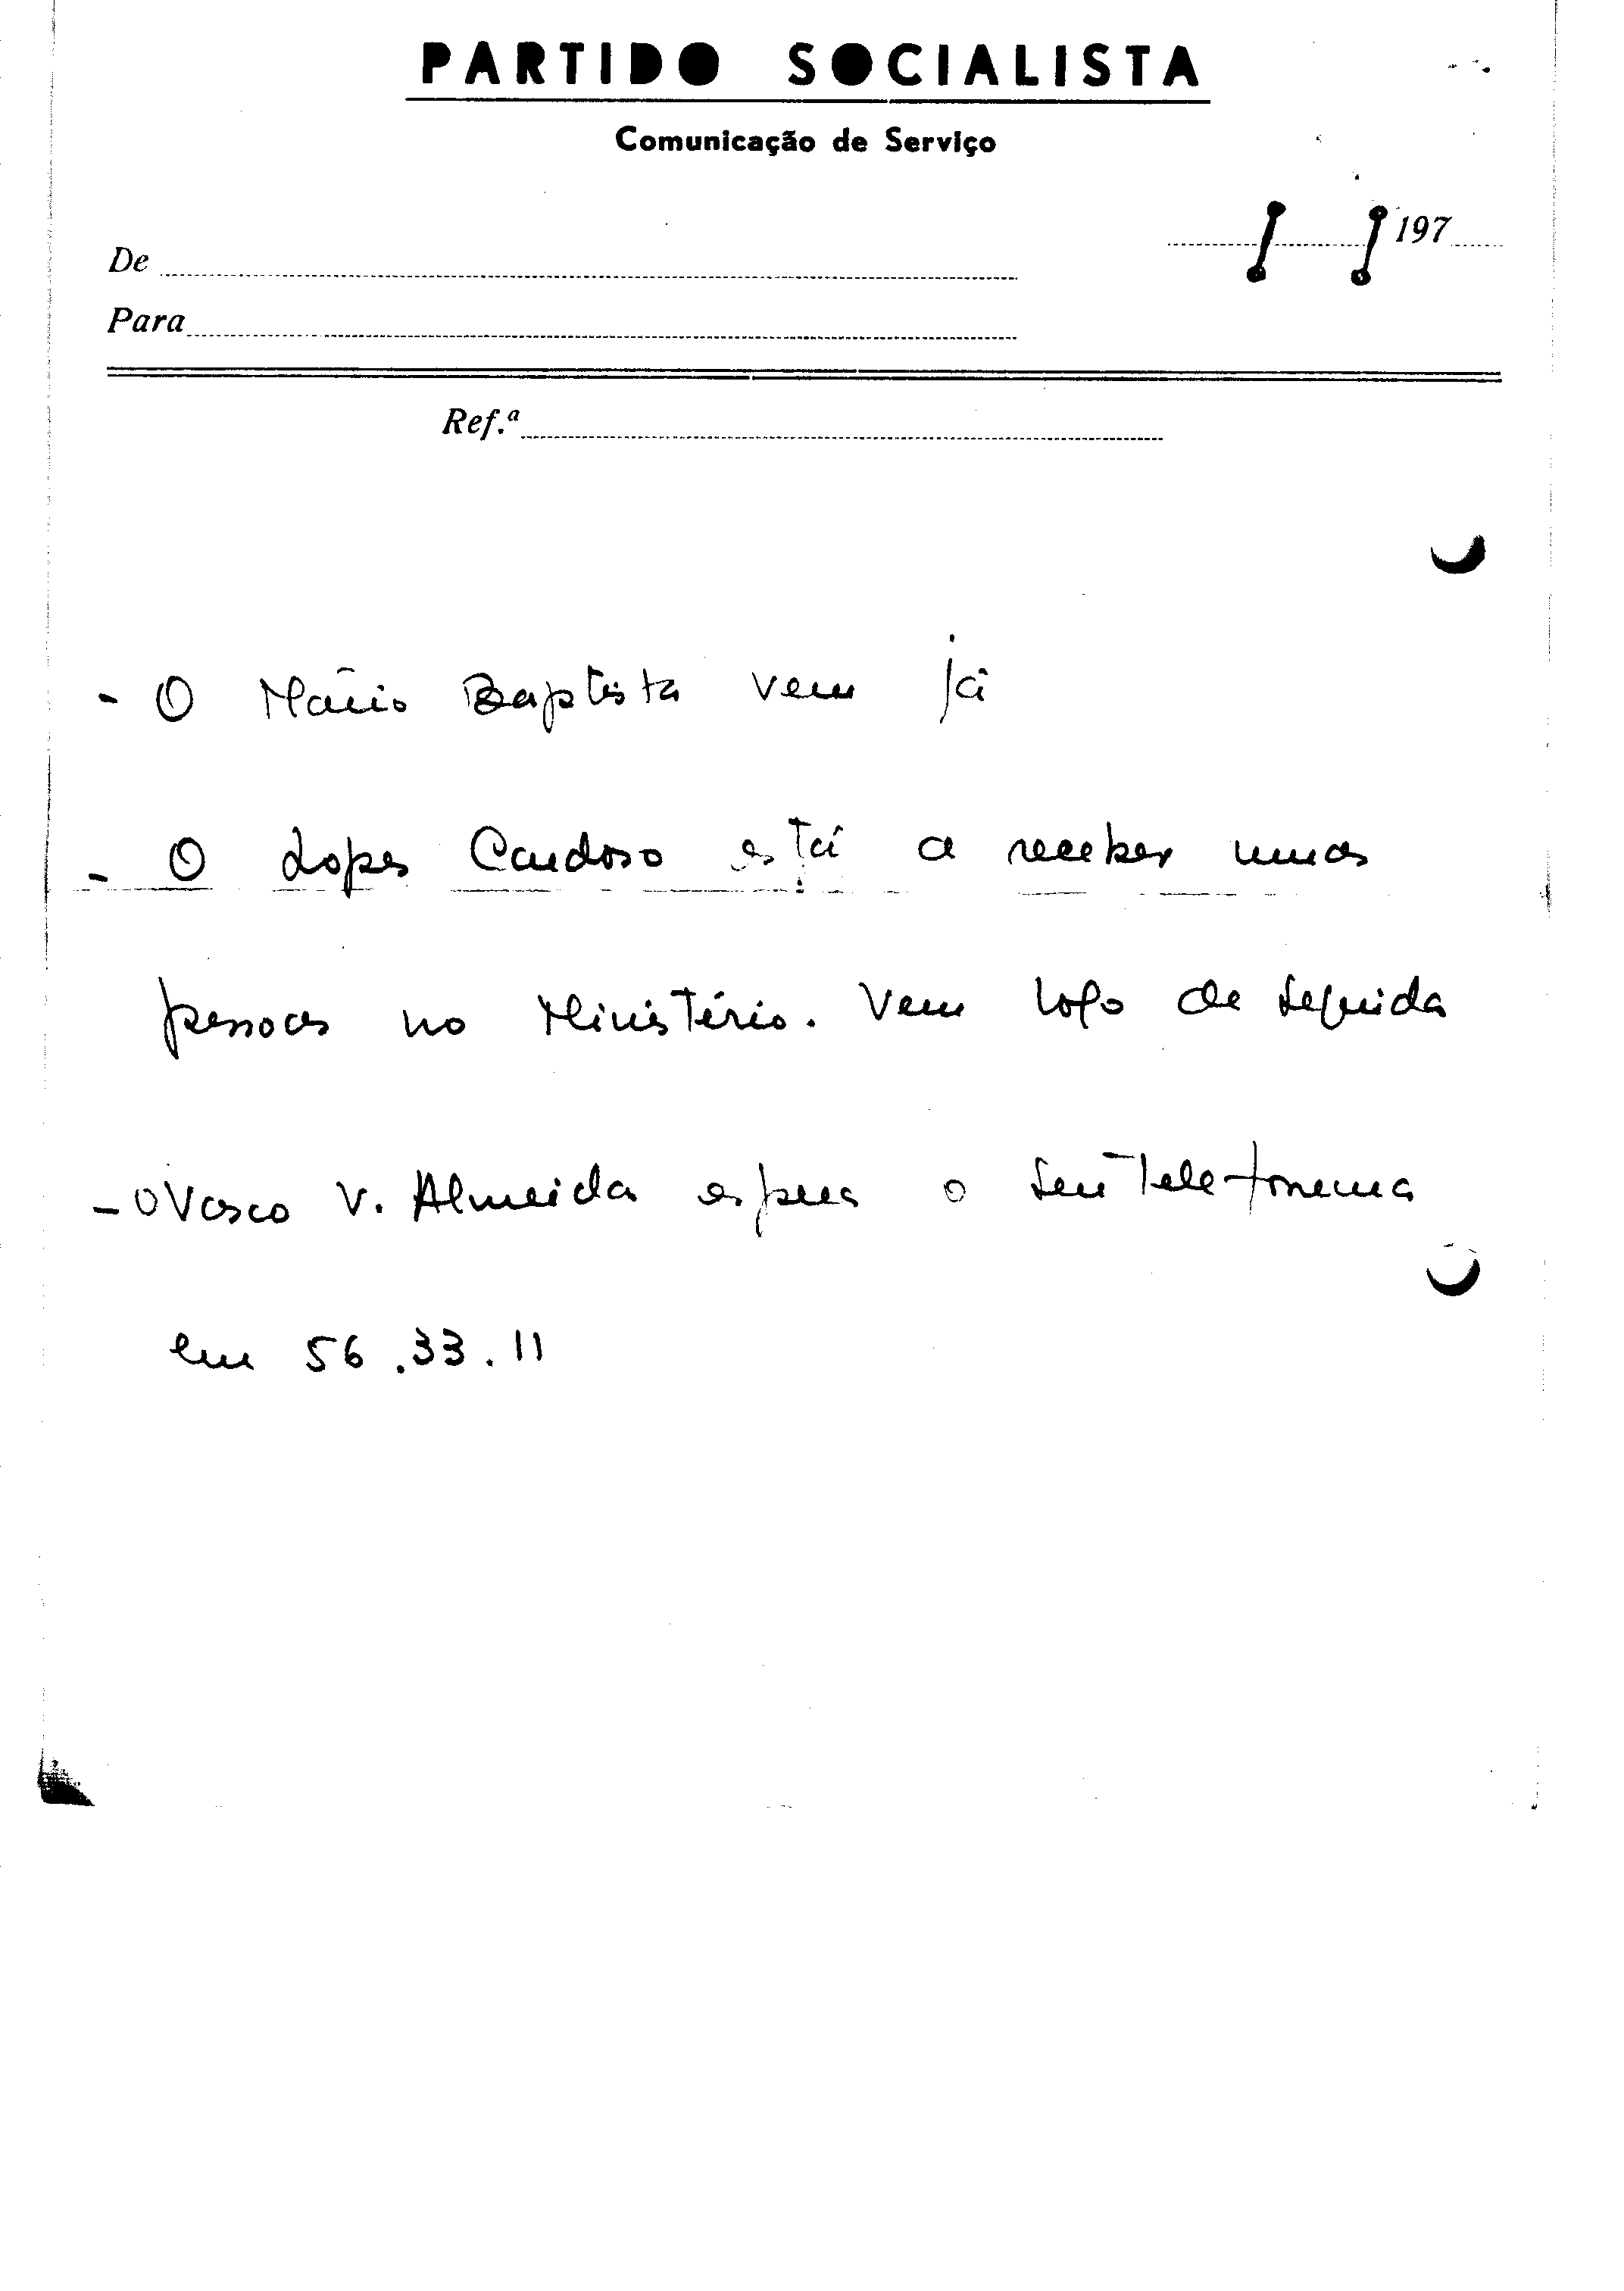 PARTIDO SOCIALISTA
Comunicação de Serviço
/ / 197
De
Para
Ref.ª
- O Mário Baptista vem já
- O Lopes Cardoso está a receber umas
pessoas no Ministério. Vem logo de seguida
- O Vasco V. Almeida espera o seu telefonema
em 56.33.11